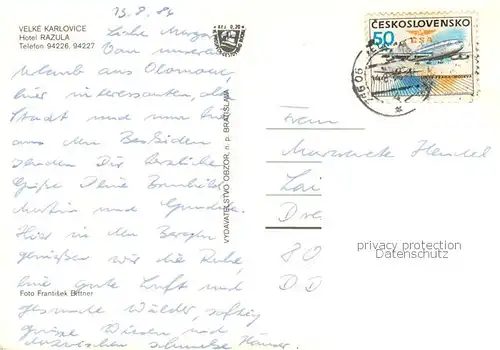 VELKÉ KARLOVICE
Hotel RAZULA
Telefon 94226, 94227
Kčs 0,20
13.8.86
Liebe
Von unserem
Urlaub aus Olomouc,
einer interessanten, alten
Stadt und nun hier
aus den Beskiden
senden Dir herzliche
Grüße Deine Brunhild
Martin und
Hier in den Bergen
genießen wir die Ruhe,
eine gute Luft und
gesunde Wälder, saftig
grüne Wiesen und
dazwischen schmucke Häuser
Foto František Bittner
VYDAVATELSTVO OBZOR, n. p. BRATISLAVA
ČESKOSLOVENSKO
50
ČSA
756 06
Frau
Margarete Henschel
Dre
80
DD
privacy protection
Datenschutz